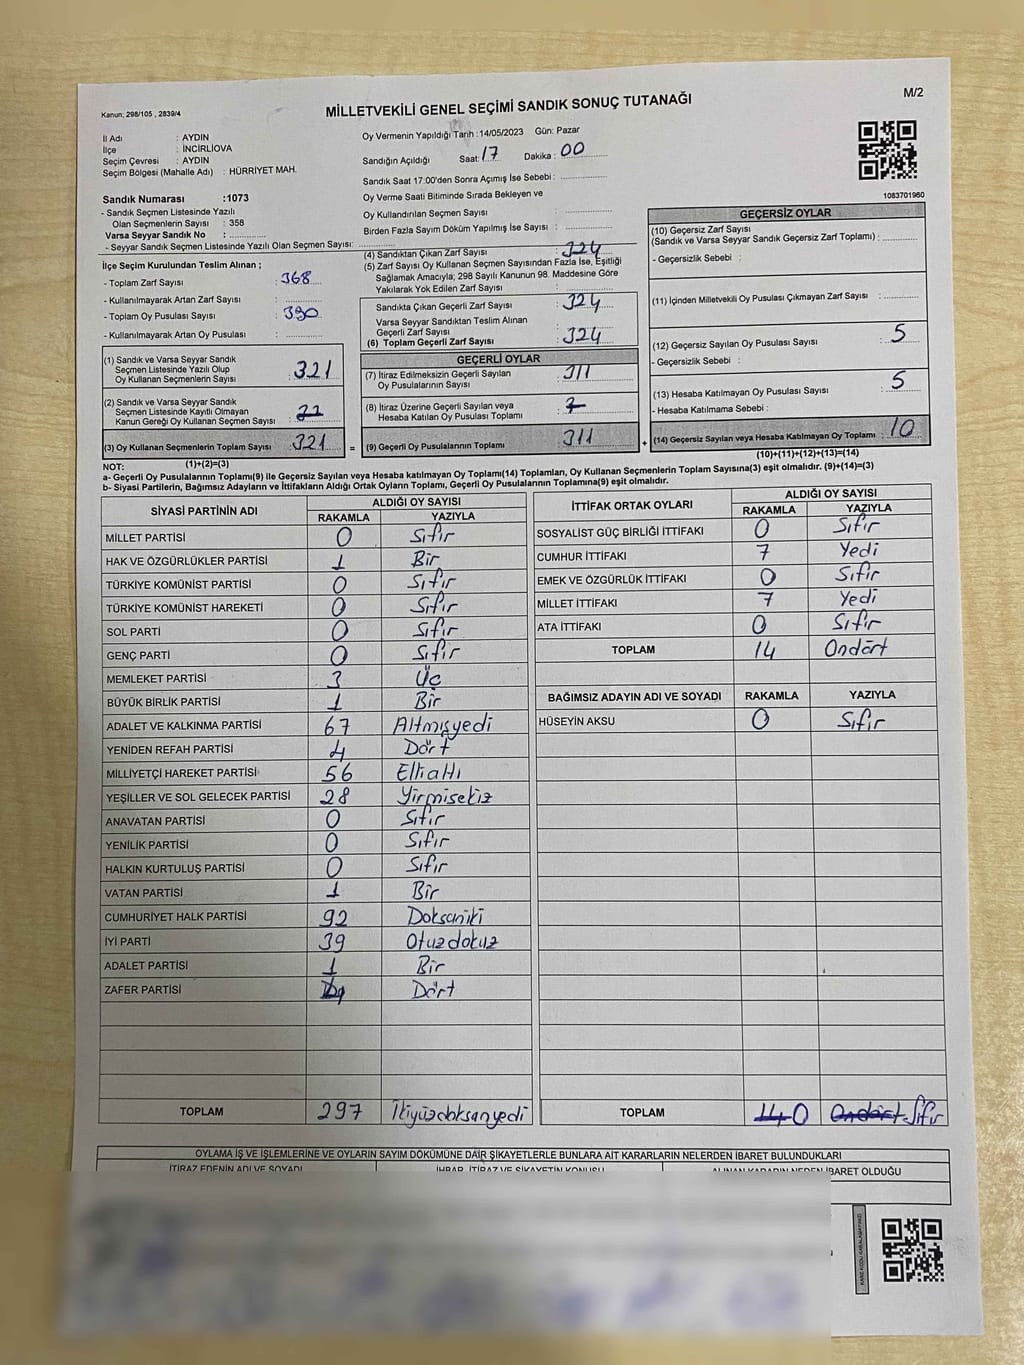 M/2
Kanun; 298/105 , 2839/4
MİLLETVEKİLİ GENEL SEÇİMİ SANDIK SONUÇ TUTANAĞI
İl Adı : AYDIN
İlçe : İNCİRLİOVA
Seçim Çevresi : AYDIN
Seçim Bölgesi (Mahalle Adı) : HÜRRİYET MAH.
Oy Vermenin Yapıldığı Tarih : 14/05/2023 Gün: Pazar
Sandığın Açıldığı Saat: 17 Dakika : 00
Sandık Saat 17:00'den Sonra Açımış İse Sebebi :
Oy Verme Saati Bitiminde Sırada Bekleyen ve
Oy Kullandırılan Seçmen Sayısı :
Birden Fazla Sayım Döküm Yapılmış İse Sayısı :
1083701960
Sandık Numarası :1073
- Sandık Seçmen Listesinde Yazılı
Olan Seçmenlerin Sayısı : 358
Varsa Seyyar Sandık No :
- Seyyar Sandık Seçmen Listesinde Yazılı Olan Seçmen Sayısı:
İlçe Seçim Kurulundan Teslim Alınan ;
- Toplam Zarf Sayısı : 368
- Kullanılmayarak Artan Zarf Sayısı :
- Toplam Oy Pusulası Sayısı :
- Kullanılmayarak Artan Oy Pusulası :
(1) Sandık ve Varsa Seyyar Sandık
Seçmen Listesinde Yazılı Olup
Oy Kullanan Seçmenlerin Sayısı : 321
(2) Sandık ve Varsa Seyyar Sandık
Seçmen Listesinde Kayıtlı Olmayan
Kanun Gereği Oy Kullanan Seçmen Sayısı :
(3) Oy Kullanan Seçmenlerin Toplam Sayısı : 321 =
(4) Sandıktan Çıkan Zarf Sayısı : 324
(5) Zarf Sayısı Oy Kullanan Seçmen Sayısından Fazla İse, Eşitliği
Sağlamak Amacıyla; 298 Sayılı Kanunun 98. Maddesine Göre
Yakılarak Yok Edilen Zarf Sayısı :
Sandıkta Çıkan Geçerli Zarf Sayısı : 324
Varsa Seyyar Sandıktan Teslim Alınan
Geçerli Zarf Sayısı :
(6) Toplam Geçerli Zarf Sayısı : 324
GEÇERLİ OYLAR
(7) İtiraz Edilmeksizin Geçerli Sayılan
Oy Pusulalarının Sayısı : 311
(8) İtiraz Üzerine Geçerli Sayılan veya
Hesaba Katılan Oy Pusulası Toplamı :
(9) Geçerli Oy Pusulalarının Toplamı : 311 +
GEÇERSİZ OYLAR
(10) Geçersiz Zarf Sayısı
(Sandık ve Varsa Seyyar Sandık Geçersiz Zarf Toplamı) :
- Geçersizlik Sebebi :
(11) İçinden Milletvekili Oy Pusulası Çıkmayan Zarf Sayısı :
(12) Geçersiz Sayılan Oy Pusulası Sayısı : 5
- Geçersizlik Sebebi :
(13) Hesaba Katılmayan Oy Pusulası Sayısı : 5
- Hesaba Katılmama Sebebi :
(14) Geçersiz Sayılan veya Hesaba Katılmayan Oy Toplamı : 10
NOT: (1)+(2)=(3) (10)+(11)+(12)+(13)=(14)
a- Geçerli Oy Pusulalarının Toplamı(9) ile Geçersiz Sayılan veya Hesaba katılmayan Oy Toplamı(14) Toplamları, Oy Kullanan Seçmenlerin Toplam Sayısına(3) eşit olmalıdır. (9)+(14)=(3)
b- Siyasi Partilerin, Bağımsız Adayların ve İttifakların Aldığı Ortak Oyların Toplamı, Geçerli Oy Pusulalarının Toplamına(9) eşit olmalıdır.
SİYASİ PARTİNİN ADI ALDIĞI OY SAYISI
RAKAMLA YAZIYLA
MİLLET PARTİSİ 0 Sıfır
HAK VE ÖZGÜRLÜKLER PARTİSİ 1 Bir
TÜRKİYE KOMÜNİST PARTİSİ 0 Sıfır
TÜRKİYE KOMÜNİST HAREKETİ 0 Sıfır
SOL PARTİ 0 Sıfır
GENÇ PARTİ 0 Sıfır
MEMLEKET PARTİSİ 3 Üç
BÜYÜK BİRLİK PARTİSİ 1 Bir
ADALET VE KALKINMA PARTİSİ 67 Altmışyedi
YENİDEN REFAH PARTİSİ 4 Dört
MİLLİYETÇİ HAREKET PARTİSİ 56 Elliallı
YEŞİLLER VE SOL GELECEK PARTİSİ 28 Yirmisekiz
ANAVATAN PARTİSİ 0 Sıfır
YENİLİK PARTİSİ 0 Sıfır
HALKIN KURTULUŞ PARTİSİ 0 Sıfır
VATAN PARTİSİ 1 Bir
CUMHURİYET HALK PARTİSİ 92 Doksaniki
İYİ PARTİ 39 Otuzdokuz
ADALET PARTİSİ 1 Bir
ZAFER PARTİSİ Dört
TOPLAM 297 İkiyüzdoksanyedi
İTTİFAK ORTAK OYLARI ALDIĞI OY SAYISI
RAKAMLA YAZIYLA
SOSYALİST GÜÇ BİRLİĞİ İTTİFAKI 0 Sıfır
CUMHUR İTTİFAKI 7 Yedi
EMEK VE ÖZGÜRLÜK İTTİFAKI 0 Sıfır
MİLLET İTTİFAKI 7 Yedi
ATA İTTİFAKI 0 Sıfır
TOPLAM 14 Ondört
BAĞIMSIZ ADAYIN ADI VE SOYADI RAKAMLA YAZIYLA
HÜSEYİN AKSU 0 Sıfır
TOPLAM 14 0 Ondört Sıfır
OYLAMA İŞ VE İŞLEMLERİNE VE OYLARIN SAYIM DÖKÜMÜNE DAİR ŞİKAYETLERLE BUNLARA AİT KARARLARIN NELERDEN İBARET BULUNDUKLARI
İTİRAZ EDENİN ADI VE SOYADI İHBAR, İTİRAZ VE ŞİKAYETİN KONUSU ALINAN KARARIN NEDEN İBARET OLDUĞU